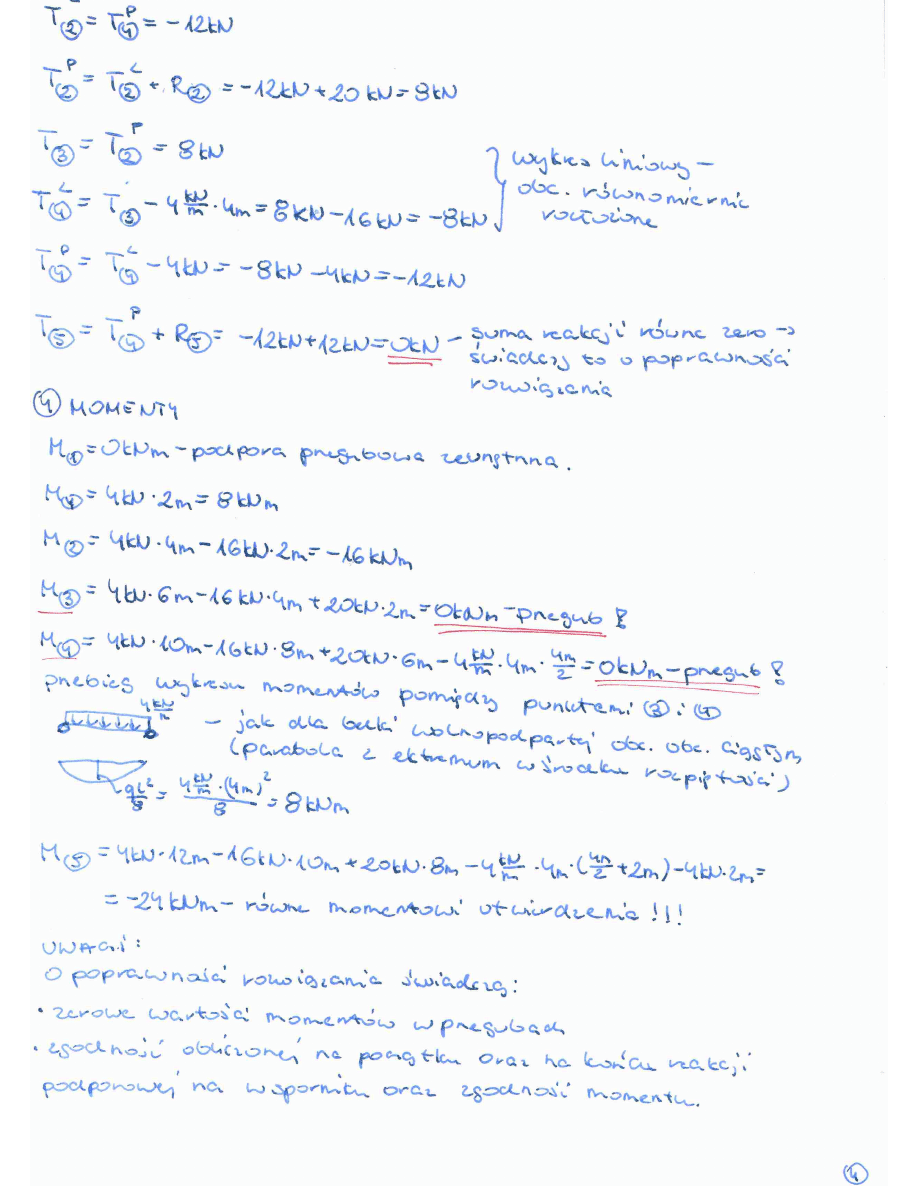 T②ᴸ = T④ᴾ = -12kN
T②ᴾ = T②ᴸ + R② = -12kN + 20kN = 8kN
T③ = T②ᴾ = 8kN
T④ᴸ = T③ - 4 kN/m · 4m = 8kN - 16kN = -8kN
wykres liniowy –
obc. równomiernie
rozłożone
T④ᴾ = T④ᴸ - 4kN = -8kN - 4kN = -12kN
T⑤ = T④ᴾ + R⑤ = -12kN + 12kN = 0kN – suma reakcji równe zero →
świadczy to o poprawności
rozwiązania
④ MOMENTY
M① = 0kNm – podpora przegubowa zewnętrzna.
M④ = 4kN · 2m = 8kNm
M② = 4kN · 4m - 16kN · 2m = -16kNm
M③ = 4kN · 6m - 16kN · 4m + 20kN · 2m = 0kNm – przegub !
M④ = 4kN · 10m - 16kN · 8m + 20kN · 6m - 4 kN/m · 4m · 4m/2 = 0kNm – przegub !
przebieg wykresu momentów pomiędzy punktami ③ i ④
4 kN/m
– jak dla belki wolnopodpartej obc. obc. ciągłym
(parabola z ekstremum w środku rozpiętości)
ql²/8 = 4 kN/m · (4m)²/8 = 8kNm
M⑤ = 4kN · 12m - 16kN · 10m + 20kN · 8m - 4 kN/m · 4m · (4m/2 + 2m) - 4kN · 2m =
= -24kNm – równe momentowi utwierdzenia !!!
UWAGI :
O poprawności rozwiązania świadczą :
· zerowe wartości momentów w przegubach
· zgodność obliczonej na początku oraz na końcu reakcji
podporowej na wsporniku oraz zgodność momentu.
④